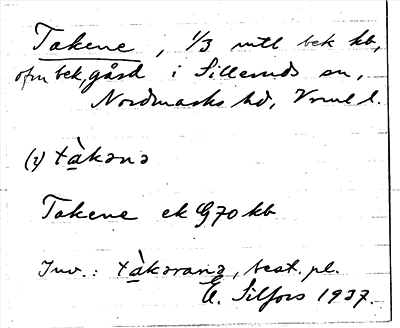 Takene, 1/3 mtl bek kb,
ofm bek, gård i Silleruds sn,
Nordmarks hd, Vrml l.
(i) tàkənə
Takene ek G70 kb
Inv.: tàkərana, best. pl.
E. Silfors 1937.